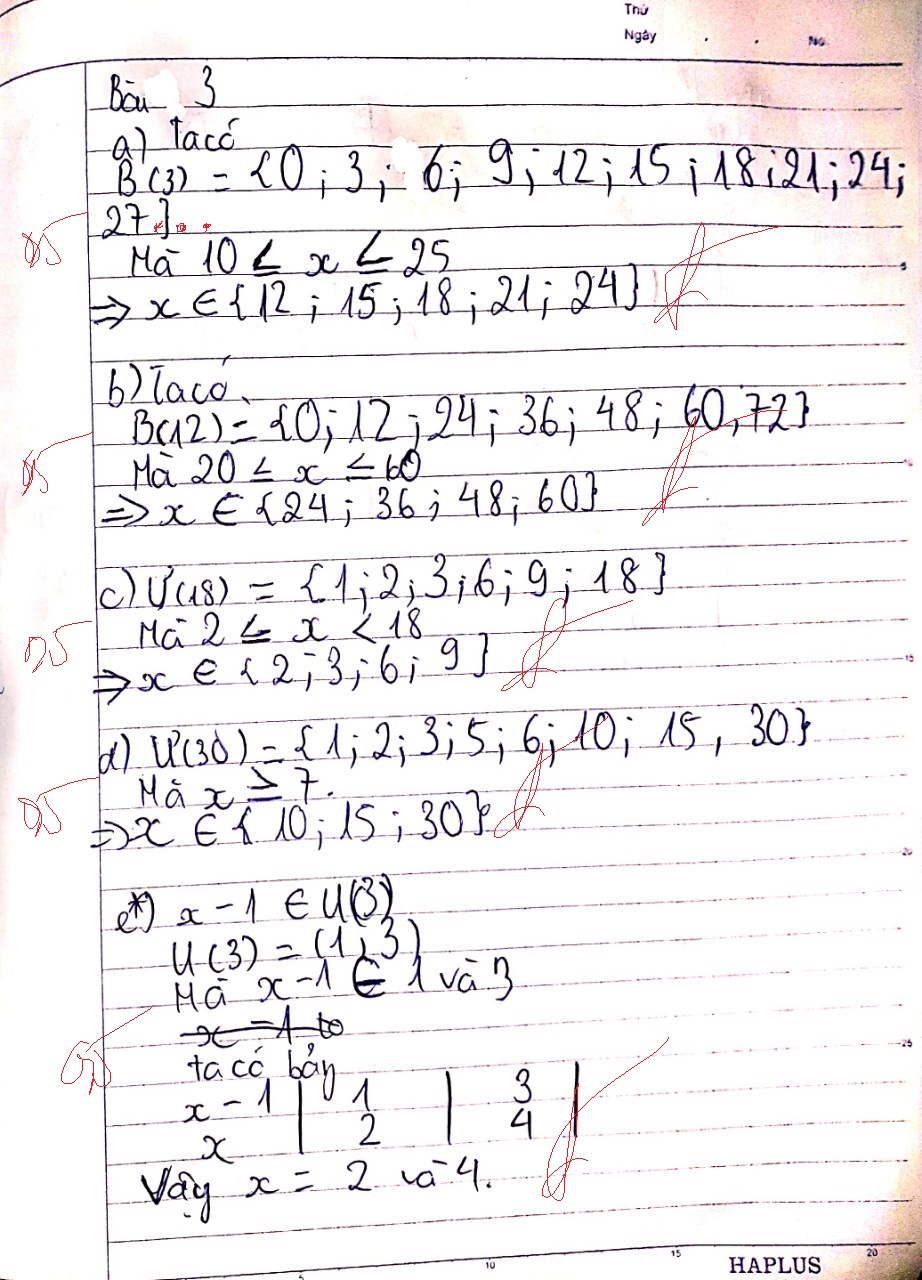 Thứ
Ngày . . No.
Bài 3
a) Ta có
B(3) = {0 ; 3 ; 6 ; 9 ; 12 ; 15 ; 18 ; 21 ; 24 ;
27}...
0,5
Mà 10 ≤ x ≤ 25
⇒ x ∈ {12 ; 15 ; 18 ; 21 ; 24}
b) Ta có
B(12) = {0 ; 12 ; 24 ; 36 ; 48 ; 60, 72}
0,5
Mà 20 ≤ x ≤ 60
⇒ x ∈ {24 ; 36 ; 48 ; 60}
c) Ư(18) = {1 ; 2 ; 3 ; 6 ; 9 ; 18}
0,5
Mà 2 ≤ x < 18
⇒ x ∈ {2 ; 3 ; 6 ; 9}
d) Ư(30) = {1 ; 2 ; 3 ; 5 ; 6 ; 10 ; 15 , 30}
0,5
Mà x ≥ 7.
⇒ x ∈ {10 ; 15 ; 30}
e*) x - 1 ∈ Ư(3)
Ư(3) = (1 ; 3)
Mà x - 1 ∈ 1 và 3
0,5
ta có bảy
x - 1 | 1 | 3 |
x | 2 | 4 |
Vậy x = 2 và 4.
5 10 15 20
HAPLUS